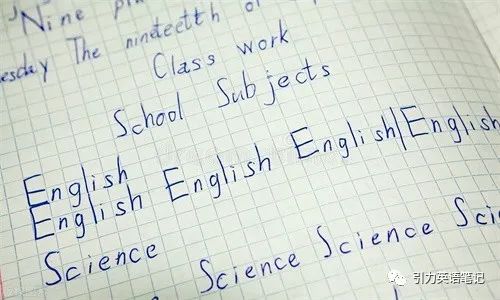 Nine
The nineteetth of
Class work
School Subjects
English
English English English English
Science
Science Science
引力英语笔记